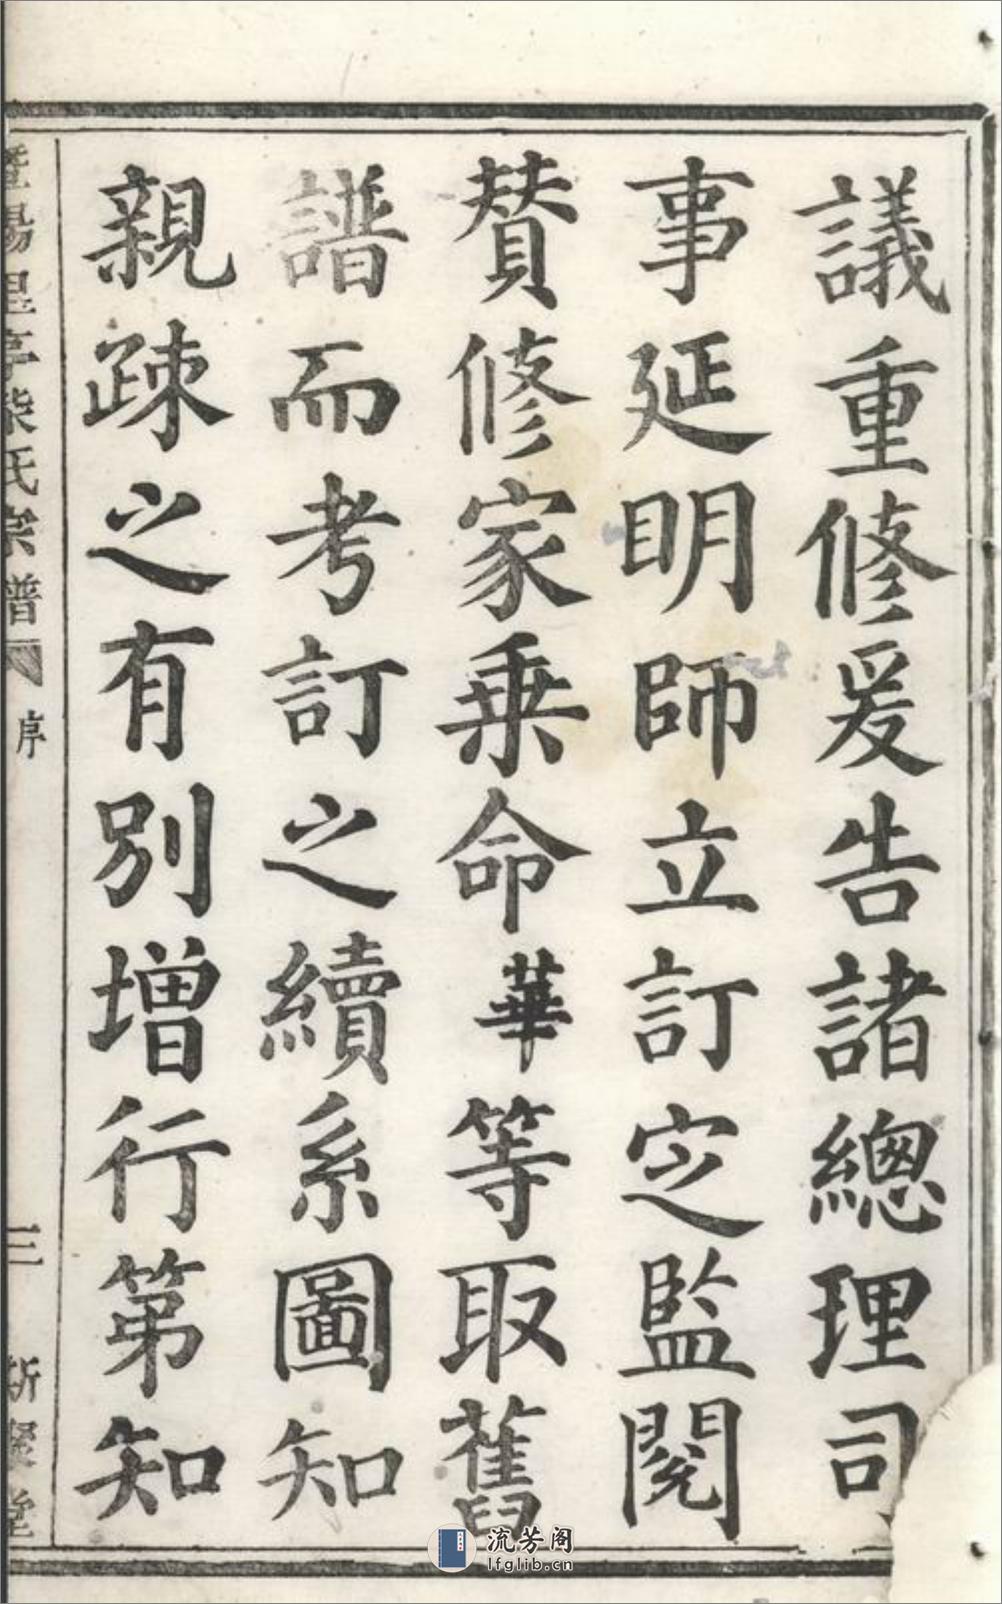 議重修爰告諸總理司
事延明師立訂定監閱
賛修家乗命華等取舊
譜而考訂之續系圖知
親疎之有別增行第知
暨陽里亭柴氏宗譜 序 三
流芳阁
lfglib.cn